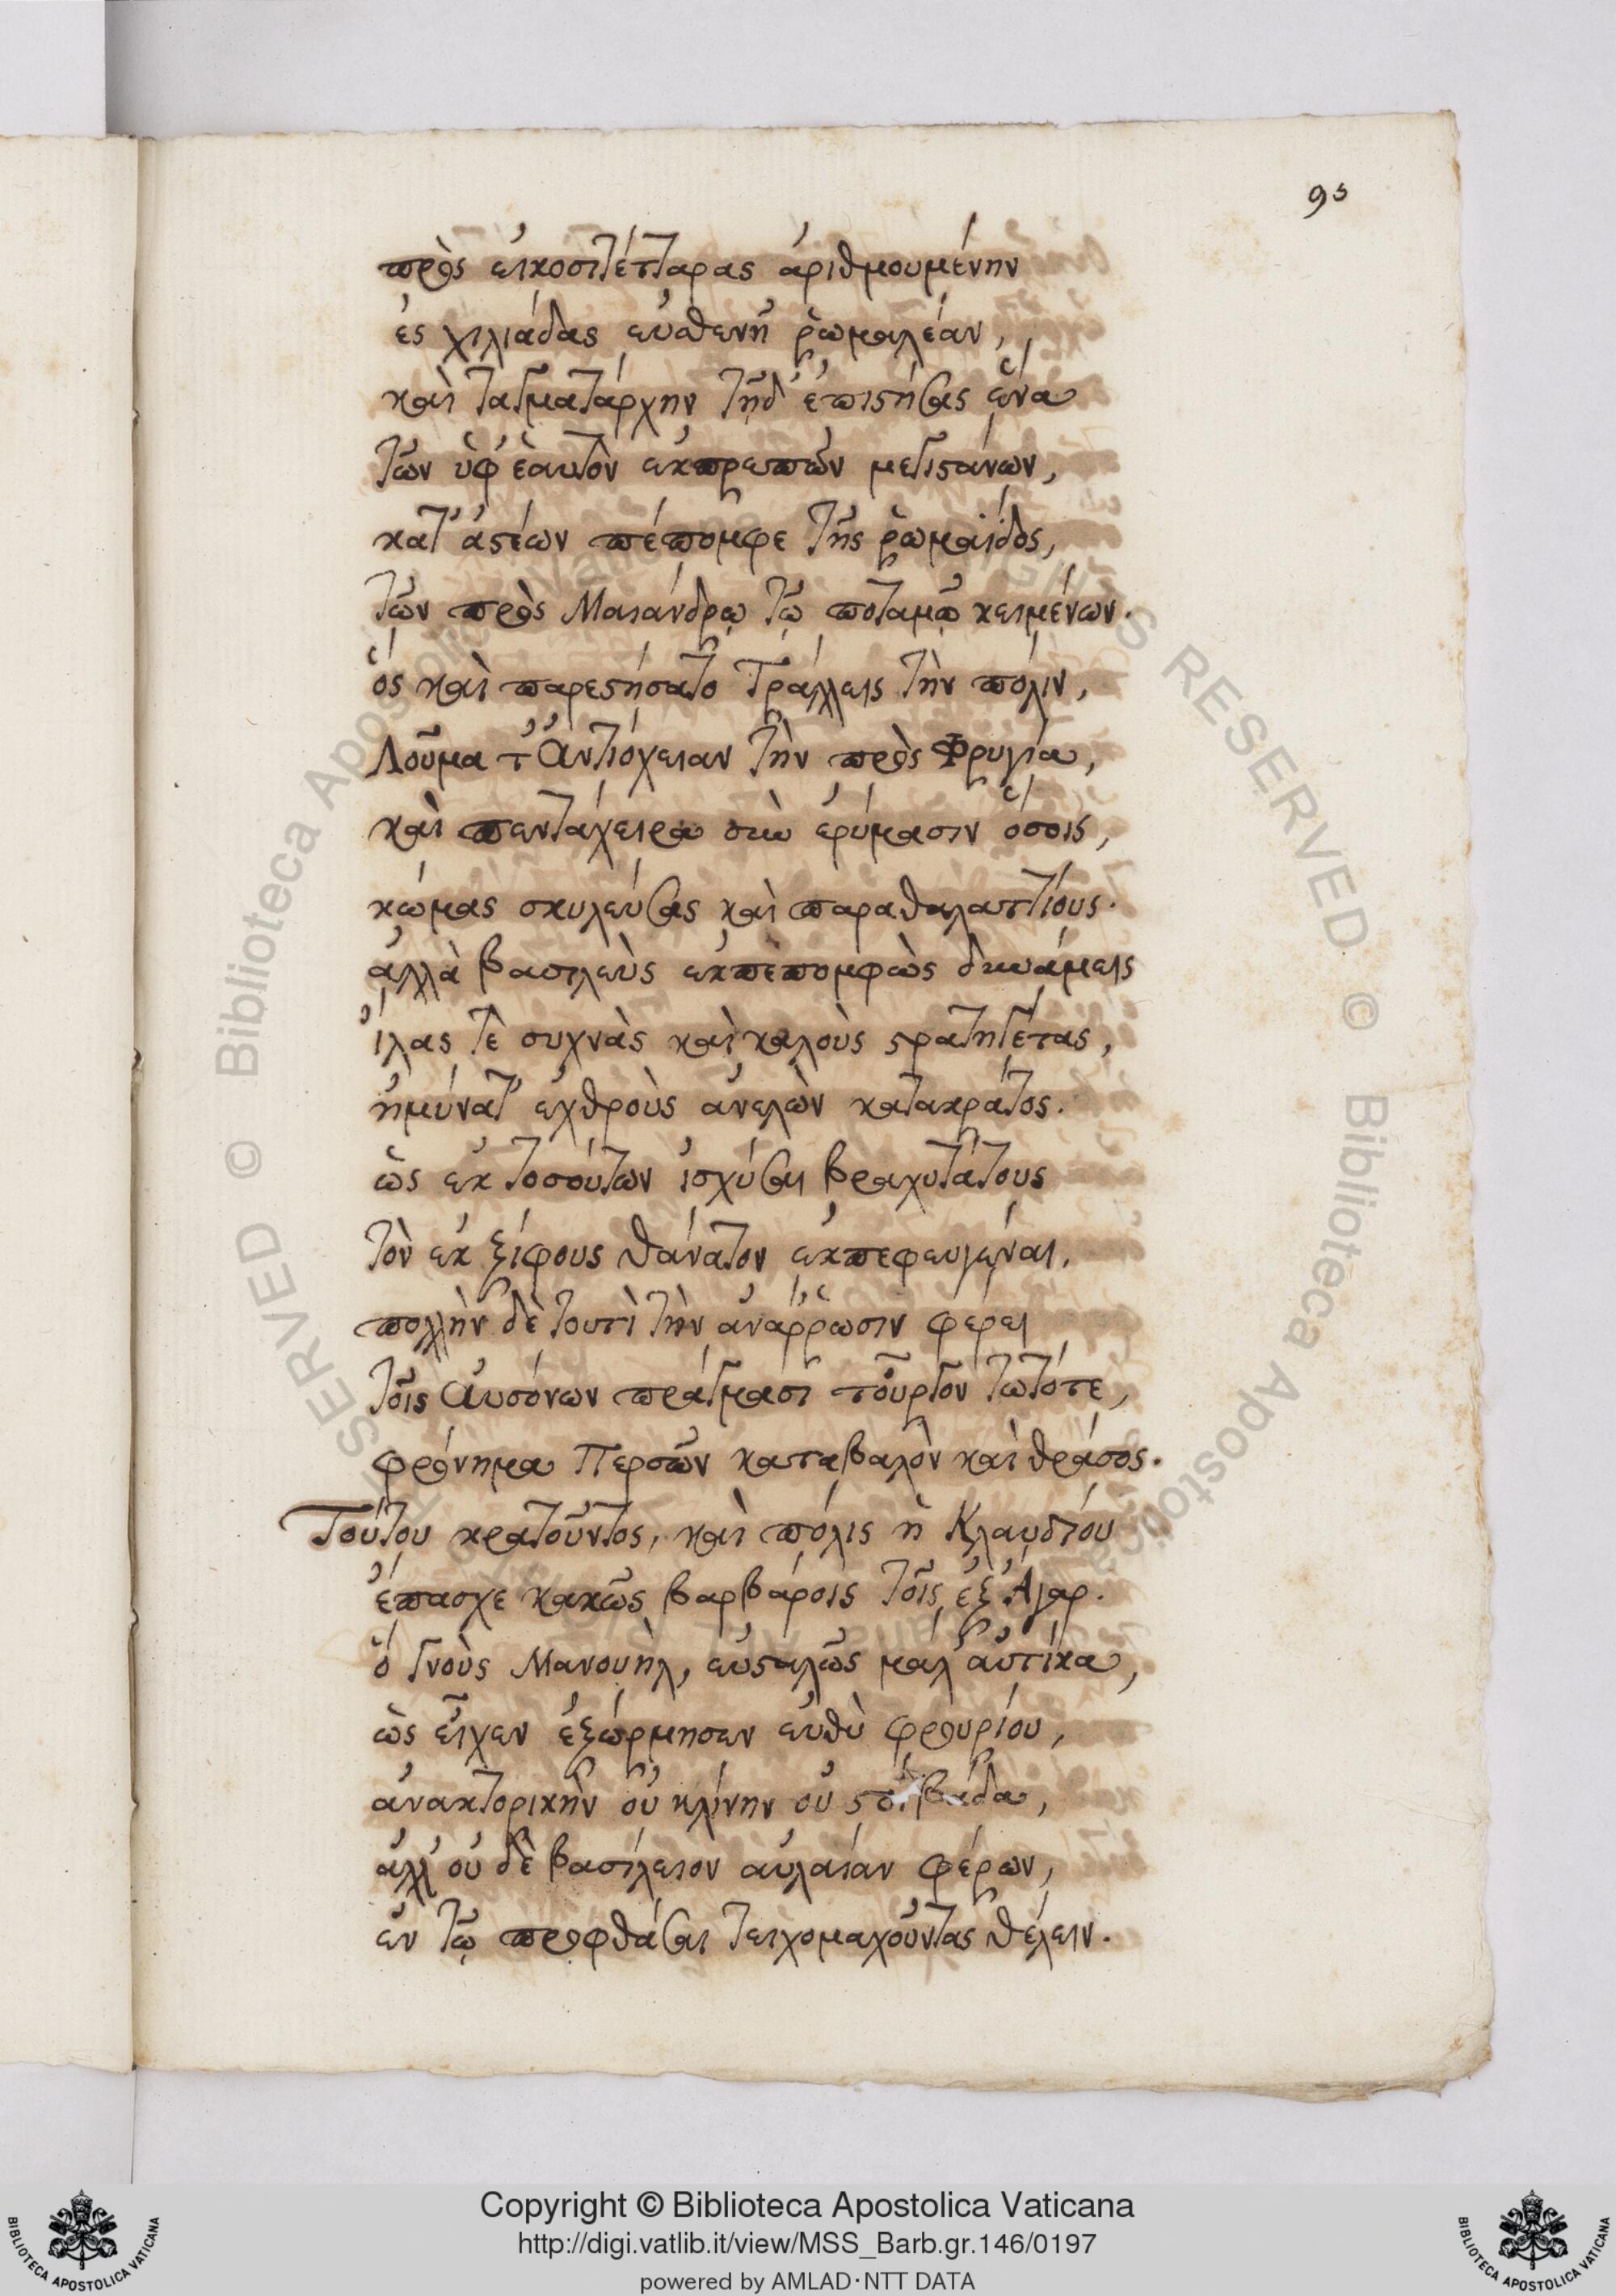 95
πρὸς εἰκοσιτέτταρας ἀριθμουμένην
ἐς χιλιάδας εὐσθενῆ ῥωμαλέαν,
καὶ ταγματάρχην τῇδ' ἐπιστήσας ἕνα
τῶν ὑφ' ἑαυτὸν ἐκπρεπῶν μεγιστάνων,
κατ' ἀστέων πέπομφε τῆς ῥωμαΐδος,
τῶν πρὸς Μαιάνδρῳ τῷ ποταμῷ κειμένων.
ὃς καὶ παρεστήσατο Τράλλεις τὴν πόλιν,
Λοῦμα τ' Ἀντιόχειαν τὴν πρὸς Φρυγία,
καὶ πεντάχειρα σὺν ἐρύμασιν ὅσοις,
κώμας σκυλεύσας καὶ παραθαλαττίους.
ἀλλὰ βασιλεὺς ἐκπεπομφὼς δυνάμεις
ἴλας τε συχνὰς καὶ καλοὺς στρατηγέτας,
ἠμύνατ' ἐχθροὺς ἀνελὼν κατακράτος.
ὡς ἐκ τοσούτων ἰσχύσαι βραχυτάτους
τὸν ἐκ ξίφους θάνατον ἐκπεφευγέναι.
πολλὴν δὲ τουτὶ τὴν ἀνάῤῥωσιν φέρει
τοῖς Αὐσόνων πράγμασι τοὖργον τωτότε,
φρόνημα Περσῶν καταβαλὸν καὶ θράσος.
Τούτου κρατοῦντος, καὶ πόλις ἡ Κλαυδίου
ἔπασχε κακῶς βαρβάροις τοῖς ἐξ Ἄγαρ.
ὃ γνοὺς Μανουὴλ, εὐσταλῶς μάλ' αὐτίκα,
ὡς εἶχεν ἐξώρμησεν εὐθὺ φρουρίου,
ἀνακτορικὴν οὐ κλίνην οὐ στιβάδα,
ἀλλ' οὐ δὲ βασίλειον αὐλαίαν φέρων,
ἐν τῷ προφθάσαι τειχομαχοῦντας θέλειν.
Copyright © Biblioteca Apostolica Vaticana
http://digi.vatlib.it/view/MSS_Barb.gr.146/0197
powered by AMLAD·NTT DATA
BIBLIOTECA APOSTOLICA VATICANA
BIBLIOTECA APOSTOLICA VATICANA